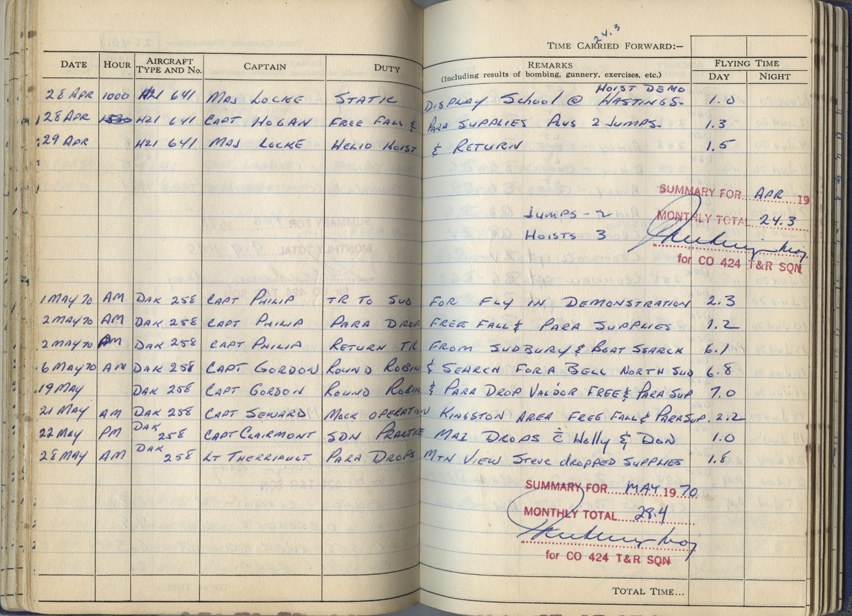 24.3
TIME CARRIED FORWARD:-
DATE HOUR AIRCRAFT TYPE AND No. CAPTAIN DUTY REMARKS (Including results of bombing, gunnery, exercises, etc.) FLYING TIME DAY NIGHT
HOIST DEMO
28 APR 1000 H21 641 MAJ LOCKE STATIC DISPLAY SCHOOL @ HASTINGS. 1.0
28 APR H21 641 CAPT HOGAN FREE FALL & PARA SUPPLIES PLUS 2 JUMPS. 1.3
29 APR H21 641 MAJ LOCKE HELIO HOIST & RETURN 1.5
SUMMARY FOR APR 19
JUMPS - 2 MONTHLY TOTAL 24.3
HOISTS 3
for CO 424 T&R SQN
1 MAY 70 AM DAK 258 CAPT PHILIP TR TO SUD FOR FLY IN DEMONSTRATION 2.3
2 MAY 70 AM DAK 258 CAPT PHILIP PARA DROP FREE FALL & PARA SUPPLIES 1.2
2 MAY 70 PM DAK 258 CAPT PHILIP RETURN TR FROM SUDBURY & BOAT SEARCH 6.1
6 MAY 70 AM DAK 258 CAPT GORDON ROUND ROBIN & SEARCH FOR A BELL NORTH SUD 6.8
19 MAY DAK 258 CAPT GORDON ROUND ROBIN & PARA DROP VAL D'OR FREE & PARA SUP 7.0
21 MAY AM DAK 258 CAPT SEWARD MOCK OPERATION KINGSTON AREA FREE FALL & PARA SUP. 2.2
22 MAY PM DAK 258 CAPT CLAIRMONT SDN PRACTISE MA1 DROPS c̄ WALLY & DON 1.0
28 MAY AM DAK 258 LT THERRIAULT PARA DROPS MTN VIEW STEVE DROPPED SUPPLIES 1.8
SUMMARY FOR MAY 1970
MONTHLY TOTAL 28.4
for CO 424 T&R SQN
TOTAL TIME...